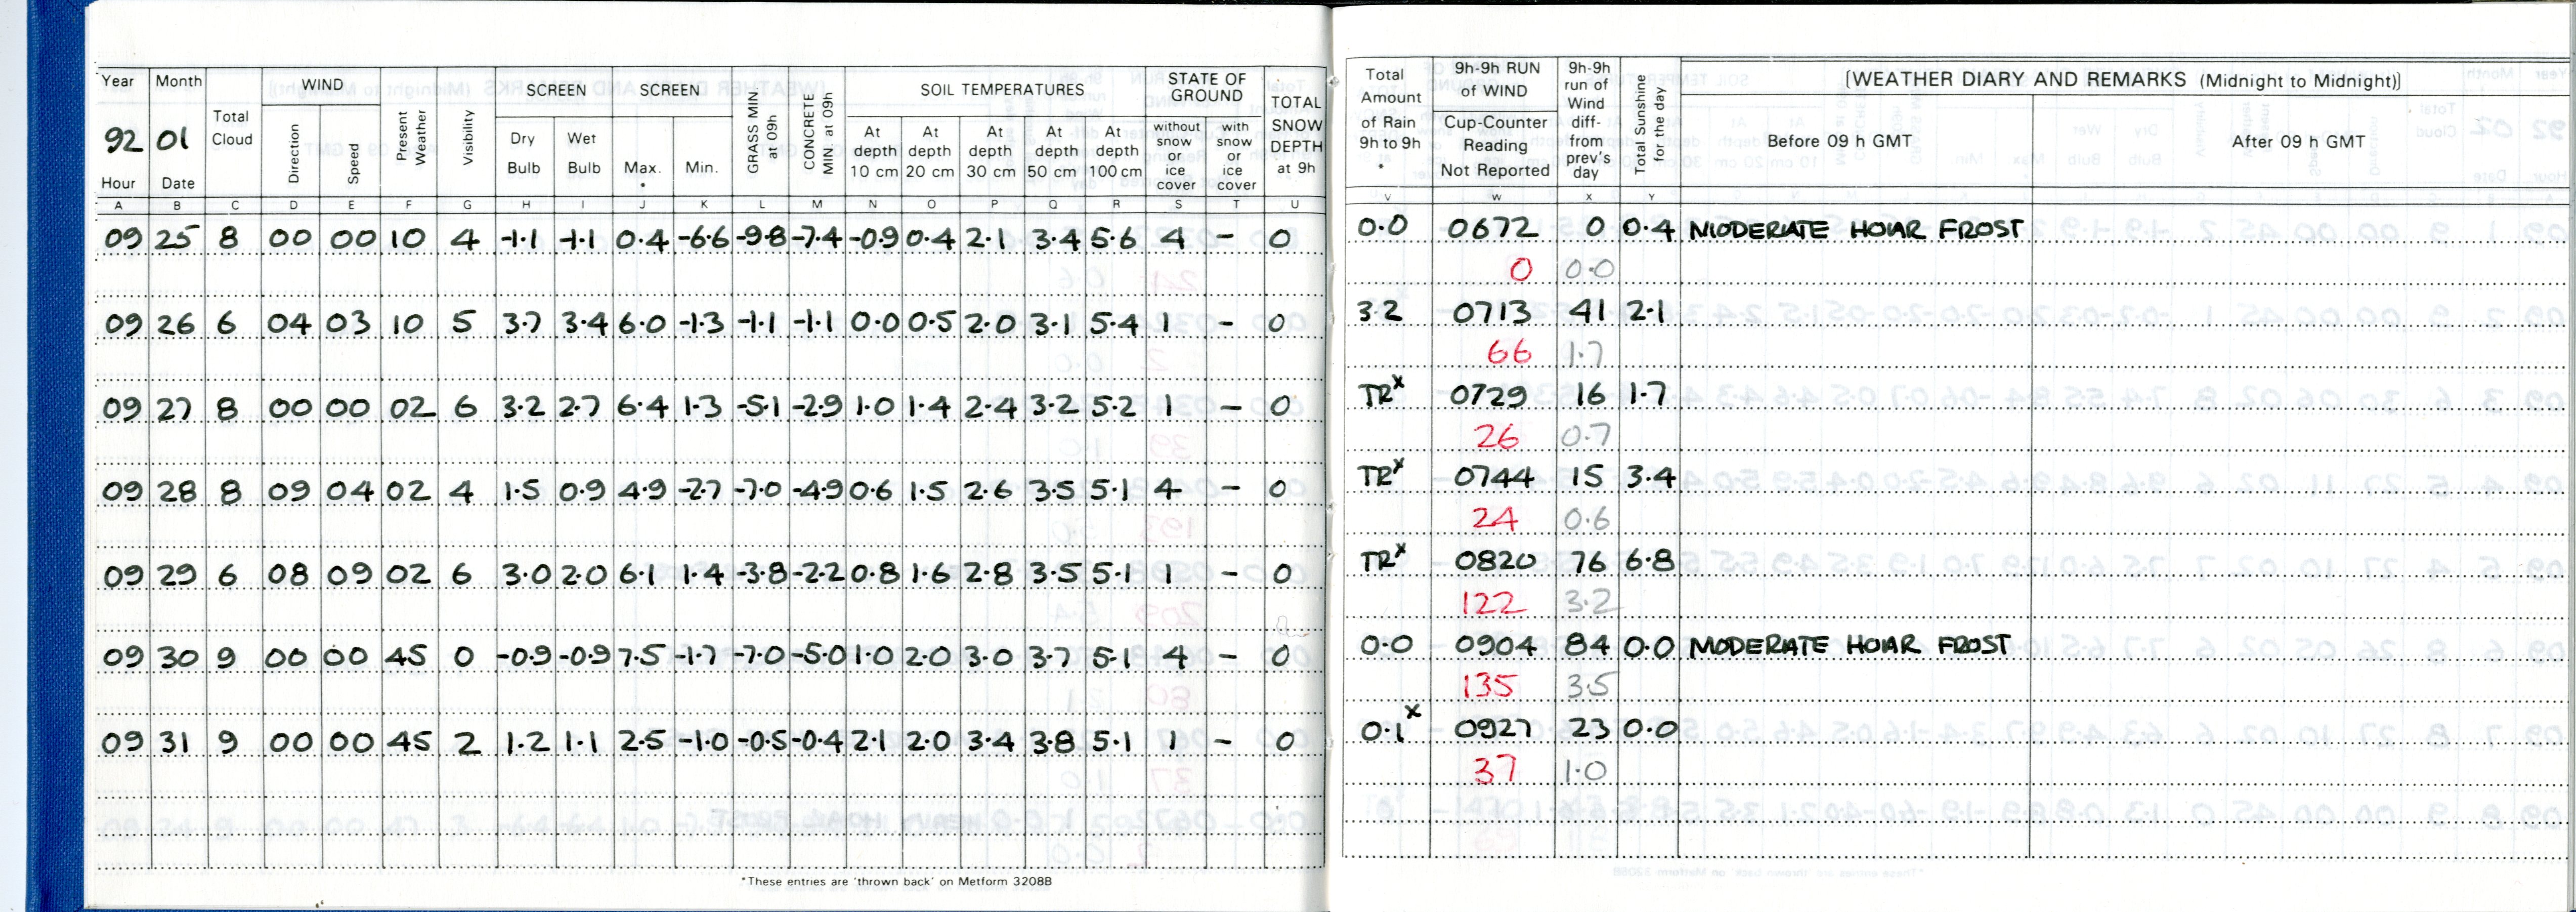 Year Month Total Cloud WIND Present Weather Visibility SCREEN SCREEN GRASS MIN at 09h CONCRETE MIN at 09h SOIL TEMPERATURES STATE OF GROUND TOTAL SNOW DEPTH at 9h
92 01 Direction Speed Dry Bulb Wet Bulb Max. * Min. At depth 10 cm At depth 20 cm At depth 30 cm At depth 50 cm At depth 100 cm without snow or ice cover with snow or ice cover
Hour Date
A B C D E F G H I J K L M N O P Q R S T U
09 25 8 00 00 10 4 -1.1 -1.1 0.4 -6.6 -9.8 -7.4 -0.9 0.4 2.1 3.4 5.6 4 - 0
09 26 6 04 03 10 5 3.7 3.4 6.0 -1.3 -1.1 -1.1 0.0 0.5 2.0 3.1 5.4 1 - 0
09 27 8 00 00 02 6 3.2 2.7 6.4 1.3 -5.1 -2.9 1.0 1.4 2.4 3.2 5.2 1 - 0
09 28 8 09 04 02 4 1.5 0.9 4.9 -2.7 -7.0 -4.9 0.6 1.5 2.6 3.5 5.1 4 - 0
09 29 6 08 09 02 6 3.0 2.0 6.1 1.4 -3.8 -2.2 0.8 1.6 2.8 3.5 5.1 1 - 0
09 30 9 00 00 45 0 -0.9 -0.9 7.5 -1.7 -7.0 -5.0 1.0 2.0 3.0 3.7 5.1 4 - 0
09 31 9 00 00 45 2 1.2 1.1 2.5 -1.0 -0.5 -0.4 2.1 2.0 3.4 3.8 5.1 1 - 0
*These entries are 'thrown back' on Metform 3208B
Total Amount of Rain 9h to 9h * 9h-9h RUN of WIND Cup-Counter Reading Not Reported 9h-9h run of Wind diff- from prev's day Total Sunshine for the day [WEATHER DIARY AND REMARKS (Midnight to Midnight)]
Before 09 h GMT After 09 h GMT
V W X Y
0.0 0672 0 0.4 MODERATE HOAR FROST
0 0.0
3.2 0713 41 2.1
66 1.7
TRx 0729 16 1.7
26 0.7
TRx 0744 15 3.4
24 0.6
TRx 0820 76 6.8
122 3.2
0.0 0904 84 0.0 MODERATE HOAR FROST
135 3.5
0.1x 0927 23 0.0
37 1.0